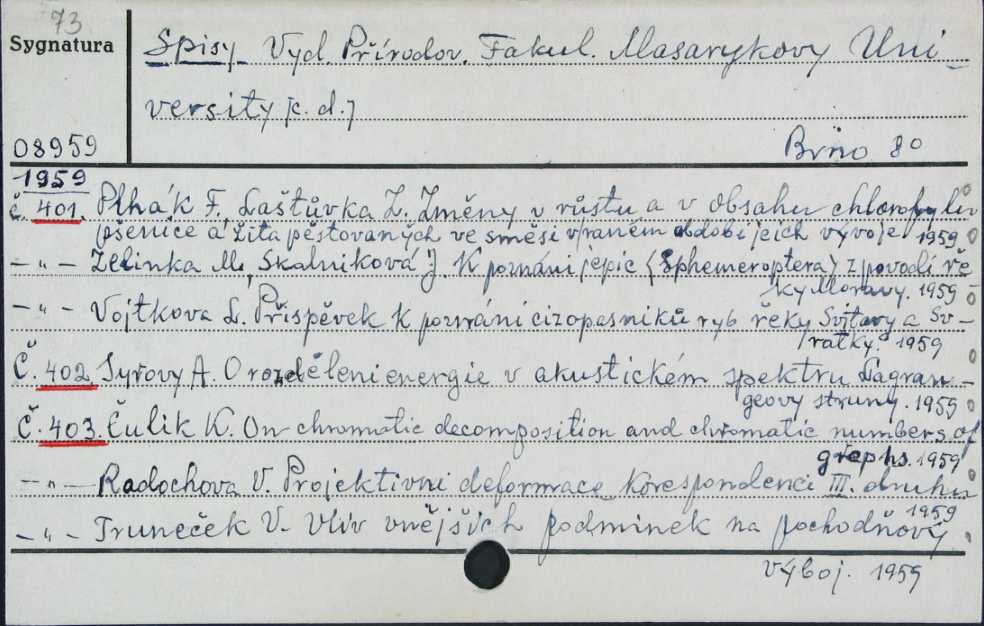 73
Sygnatura
Spisy Vyd. Přírodov. Fakul. Masarykovy Uni-
versity [c. d.]
08959
Brno 80
1959
č. 401. Plhák F., Laštůvka Z. Změny v růstu a v obsahu chlorofylu
pšenice a žita pěstovaných ve směsi v raném období jeich vývoje 1959
— „ — Zelinka M., Skalniková J. K poznáni jepic (Ephemeroptera) z povodí ře
ky Moravy. 1959
— „ — Vojtkova L. Příspěvek k poznáni cizopasniků ryb řeky Svitavy a Sv-
ratky. 1959
Č. 402. Syrovy A. O rozděleni energie v akustickém spektru Lagran-
geovy struny. 1959
Č. 403. Čulik K. On chromatic decomposition and chromatic numbers of
graphs. 1959
— „ — Radochova V. Projektivni deformace korespondenci III. druhu
1959
— „ — Truneček V. Vliv vnějšich podminek na pochodňový
výboj. 1959